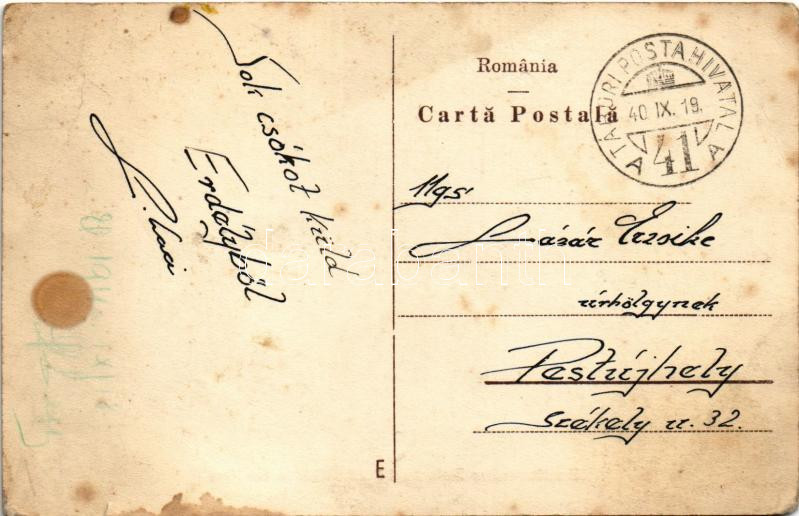 Sok csókot küld
Erdélyből
L. Laci
România
Cartă Postală
TÁBORI POSTAHIVATAL
A 41 A
40 IX. 19.
Mgs
Lázár Erzsike
úrhölgynek
Pestújhely
Székely u. 32.
E
darabanth